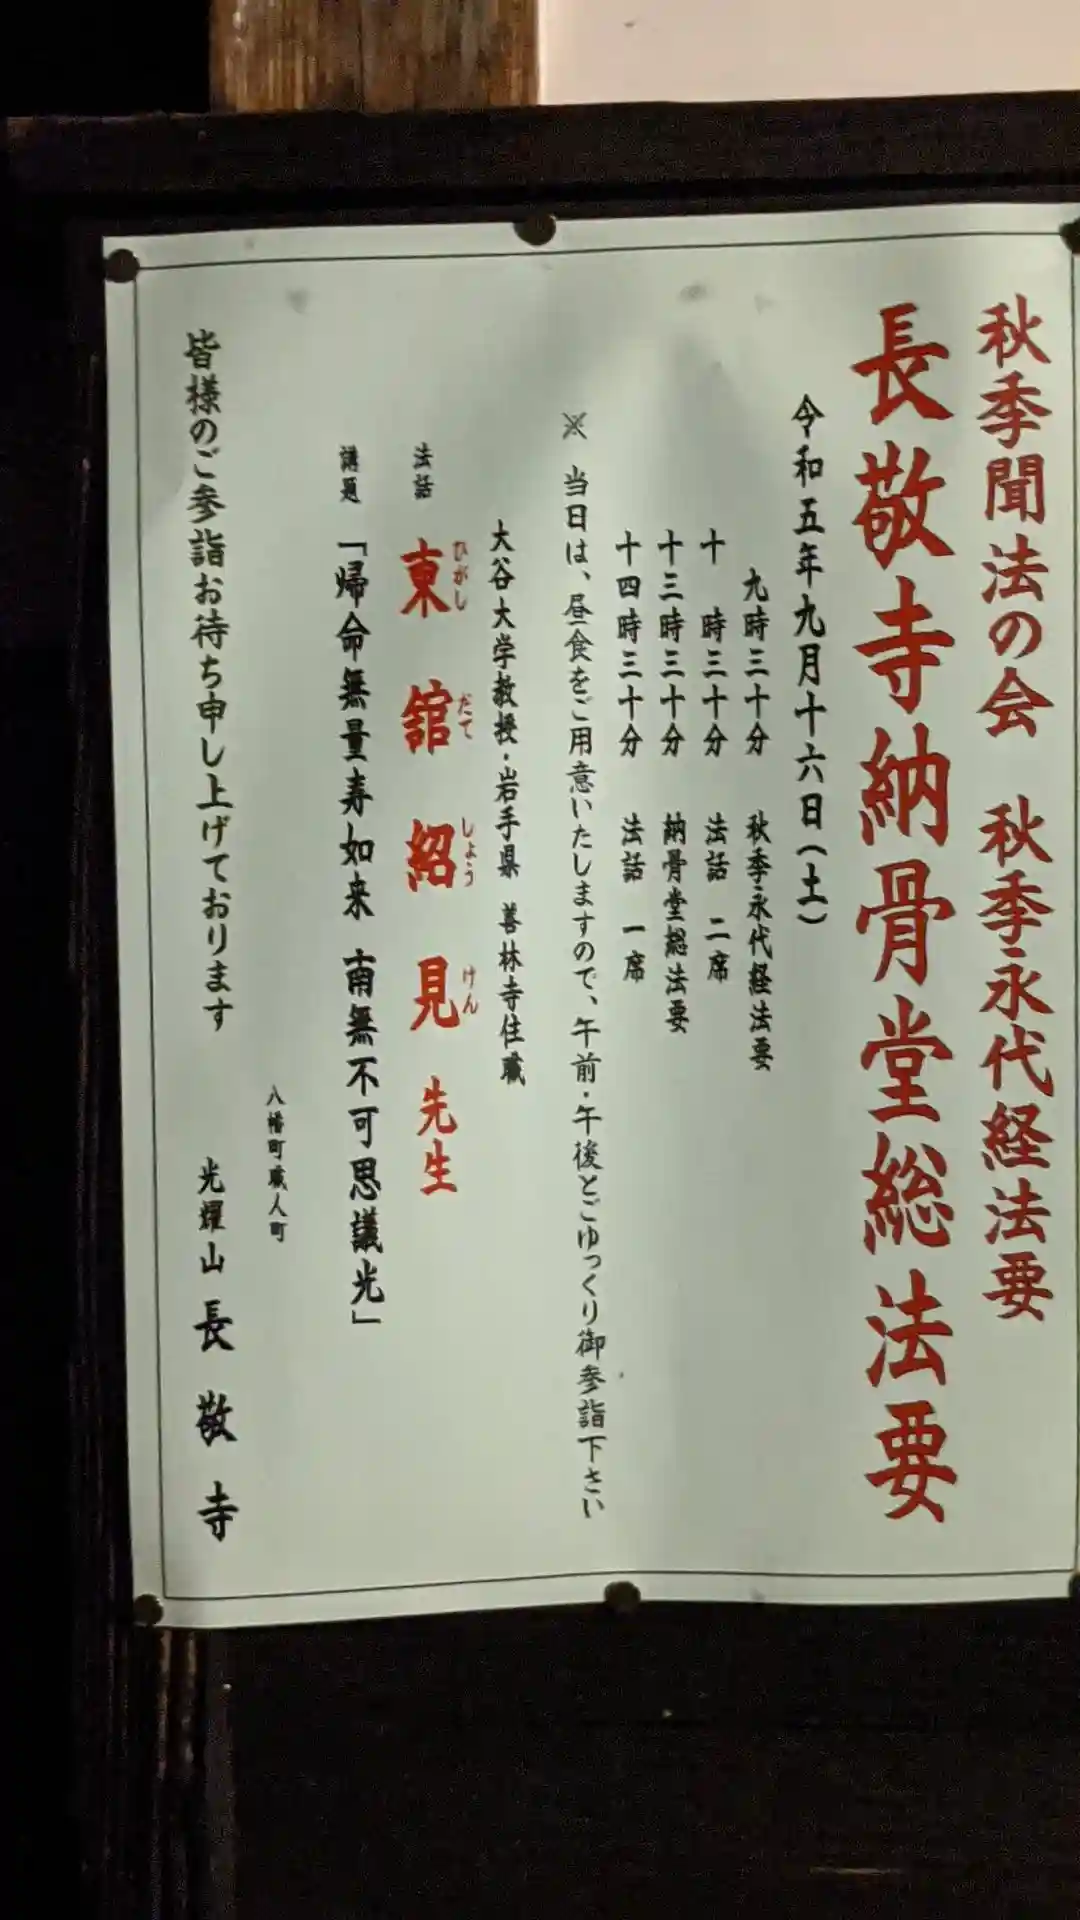 秋季聞法の会　秋季永代経法要
長敬寺納骨堂総法要
令和五年九月十六日（土）
九時三十分　秋季永代経法要
十時三十分　法話　二席
十三時三十分　納骨堂総法要
十四時三十分　法話　一席
※　当日は、昼食をご用意いたしますので、午前・午後とごゆっくり御参詣下さい
大谷大学教授・岩手県　善林寺住職
法話　東舘紹見先生
ひがし　だて　しょう　けん
講題　「帰命無量寿如来　南無不可思議光」
八幡町職人町
皆様のご参詣お待ち申し上げております　光耀山　長敬寺